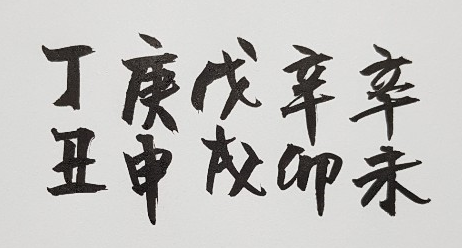 辛未
辛卯
戊戌
庚申
丁丑